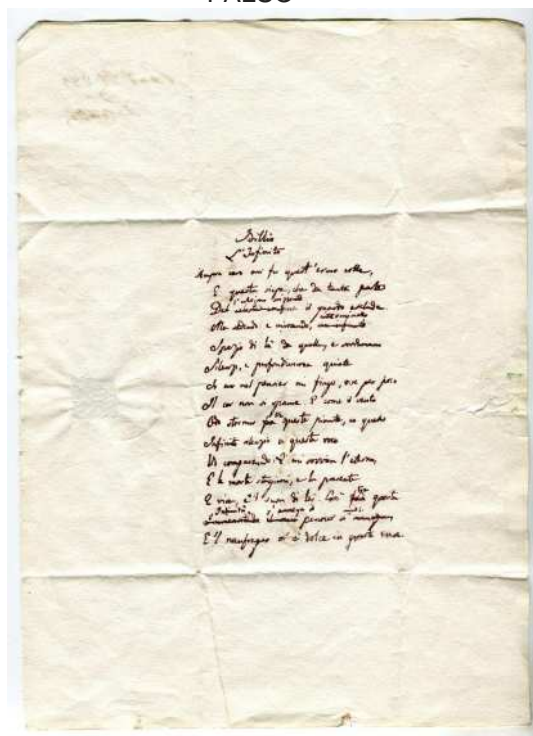 FALSO
Idillio
L'Infinito
Sempre caro mi fu quest'ermo colle,
E questa siepe, che da tanta parte
Dell'
il guardo esclude
Ma sedendo e mirando,
Spazio di là da quella, e sovrumani
Silenzi, e profondissima quiete
Io nel pensier mi fingo, ove per poco
Il cor non si spaura. E come il vento
Odo stormir queste piante, io quello
Infinito silenzio a questa voce
Vo comparando: E mi sovvien l'eterno,
E le morte stagioni, e la presente
E viva, e 'l suon di lei. Così questa
Infinità s'annega il
pensier
E 'l naufragar m'è dolce in questo mare